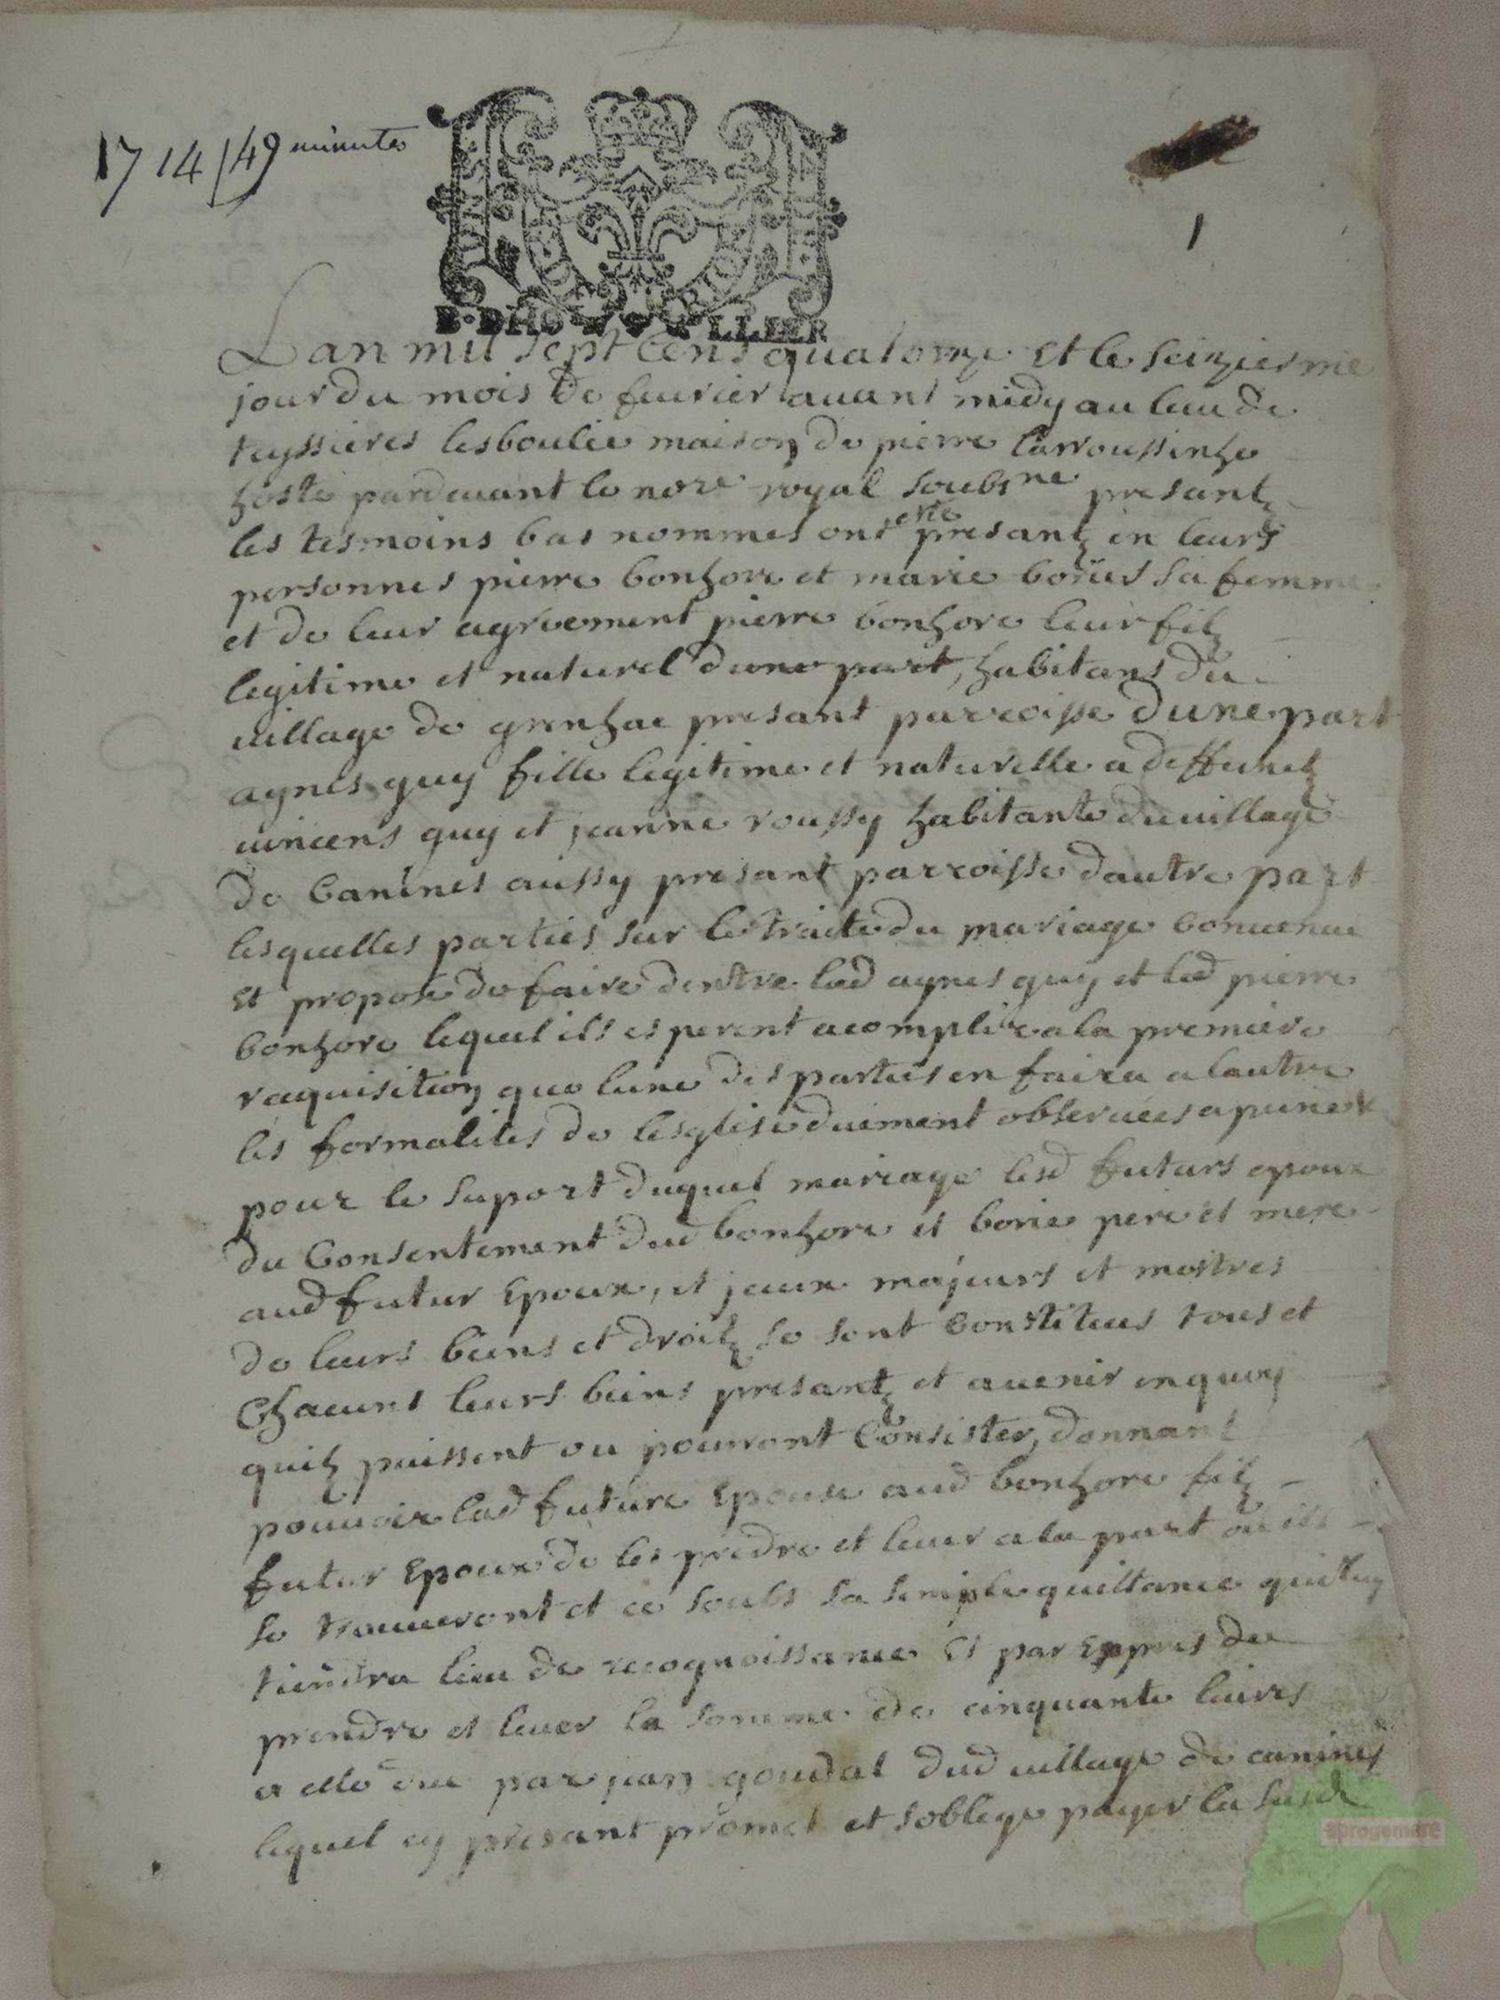 1714 / 49 minutes
1
B·DHO LLIER
Lan mil sept cens quatorze et le seiziesme
jour du mois de feurier auant midy au lieu de
teyssieres lesboulie maison de pierre larroussinhe
hoste pardeuant le nore royal soubsne presantz
les tesmoins bas nommes ont este presantz en leurs
personnes pierre bonhore et marie bories sa femme
et de leur agreement pierre bonhore leur filz
legitime et naturel dune part, habitans du
uillage de grenhac presant parroisse dune part
agnes guy fille legitime et naturelle a deffunctz
uincens guy et jeanne roussy habitante du uillage
de Canines aussy presant parroisse dautre part
lesquelles parties sur le traite du mariage conuenu
et propose de faire dentre lad agnes guy et led pierre
bonhore lequel ils esperent acomplir a la premiere
raquisition que lune des parties en faira a lautre
les formalites de lesglise duement obseruees a peine &
pour le suport duquel mariage lesd futurs epoux
du Consentement dud bonhore et borie pere et mere
aud futur Epoux, et jceux majeurs et maitres
de leurs biens et droitz se sont Constitues tous et
Chacuns leurs biens presantz et auenir en quoy
quilz puissent ou pourront Consister, donnant
pouuoir lad future Epouse aud bonhore filz
futur Epoux de les predre et leuer a la part ou ils
se trouueront et ce soubs sa simple quittance qui luy
tiendra lieu de recognoissance Et par Expres de
prendre et leuer la somme de cinquante liures
a elle due par jean goudal dud uillage de canines
lequel cy presant promet et soblege payer la susd
aprogemere